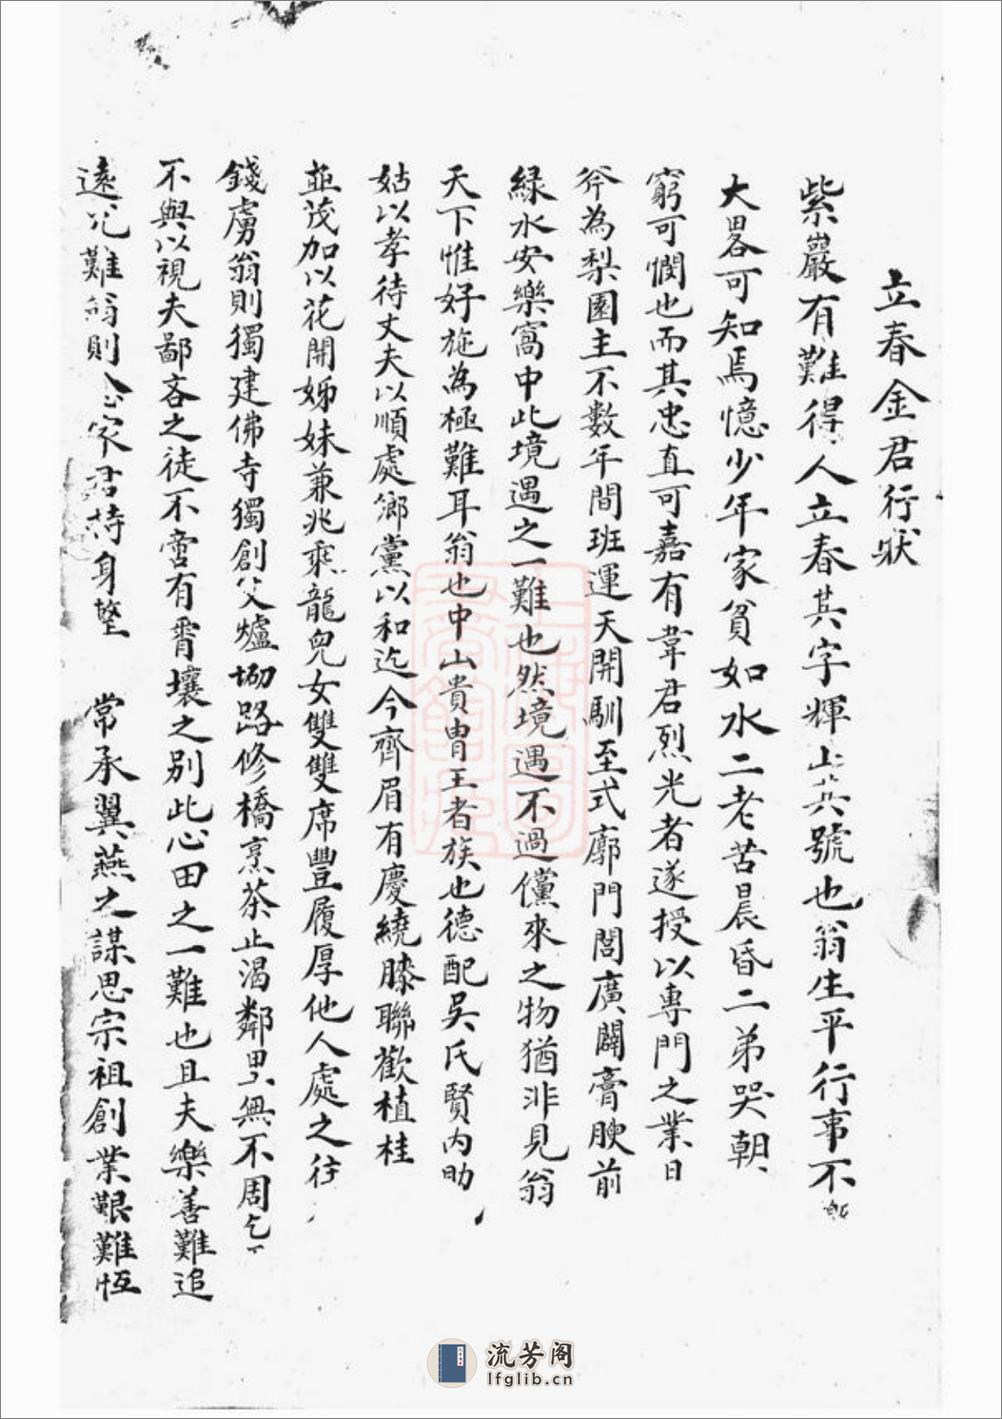 立春金君行狀
紫巖有難得人立春其字輝山其號也翁生平行事不
大畧可知焉憶少年家貧如水二老苦晨昏二弟哭朝
窮可憫也而其忠直可嘉有韋君烈光者遂授以專門之業日
斧為梨園主不數年間班運天開馴至式廓門閭廣闢膏腴前
綠水安樂窩中此境遇之一難也然境遇不過儻來之物猶非見翁
天下惟好施為極難耳翁也中山貴胄王者族也德配吳氏賢內助
姑以孝待丈夫以順處鄉黨以和迄今齊眉有慶繞膝聯歡植桂
並茂加以花開姊妹兼兆乘龍兒女雙雙席豐履厚他人處之往
錢虜翁則獨建佛寺獨創父爐砌路修橋烹茶止渴鄰里無不周
不與以視夫鄙吝之徒不啻有霄壤之別此心田之一難也且夫樂善難追
遠尤難翁則家君持身 常承翼燕之謀思宗祖創業艱難恆
流芳阁
lfglib.cn